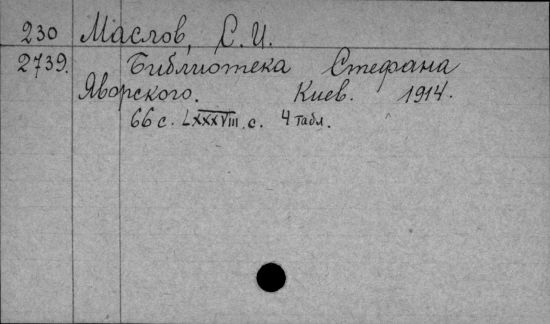 230 Маслов, С. И.
2739. Библиотека Стефана
Яворского. Киев. 1914.
66 с. LXXXVIII. с. 4 табл.